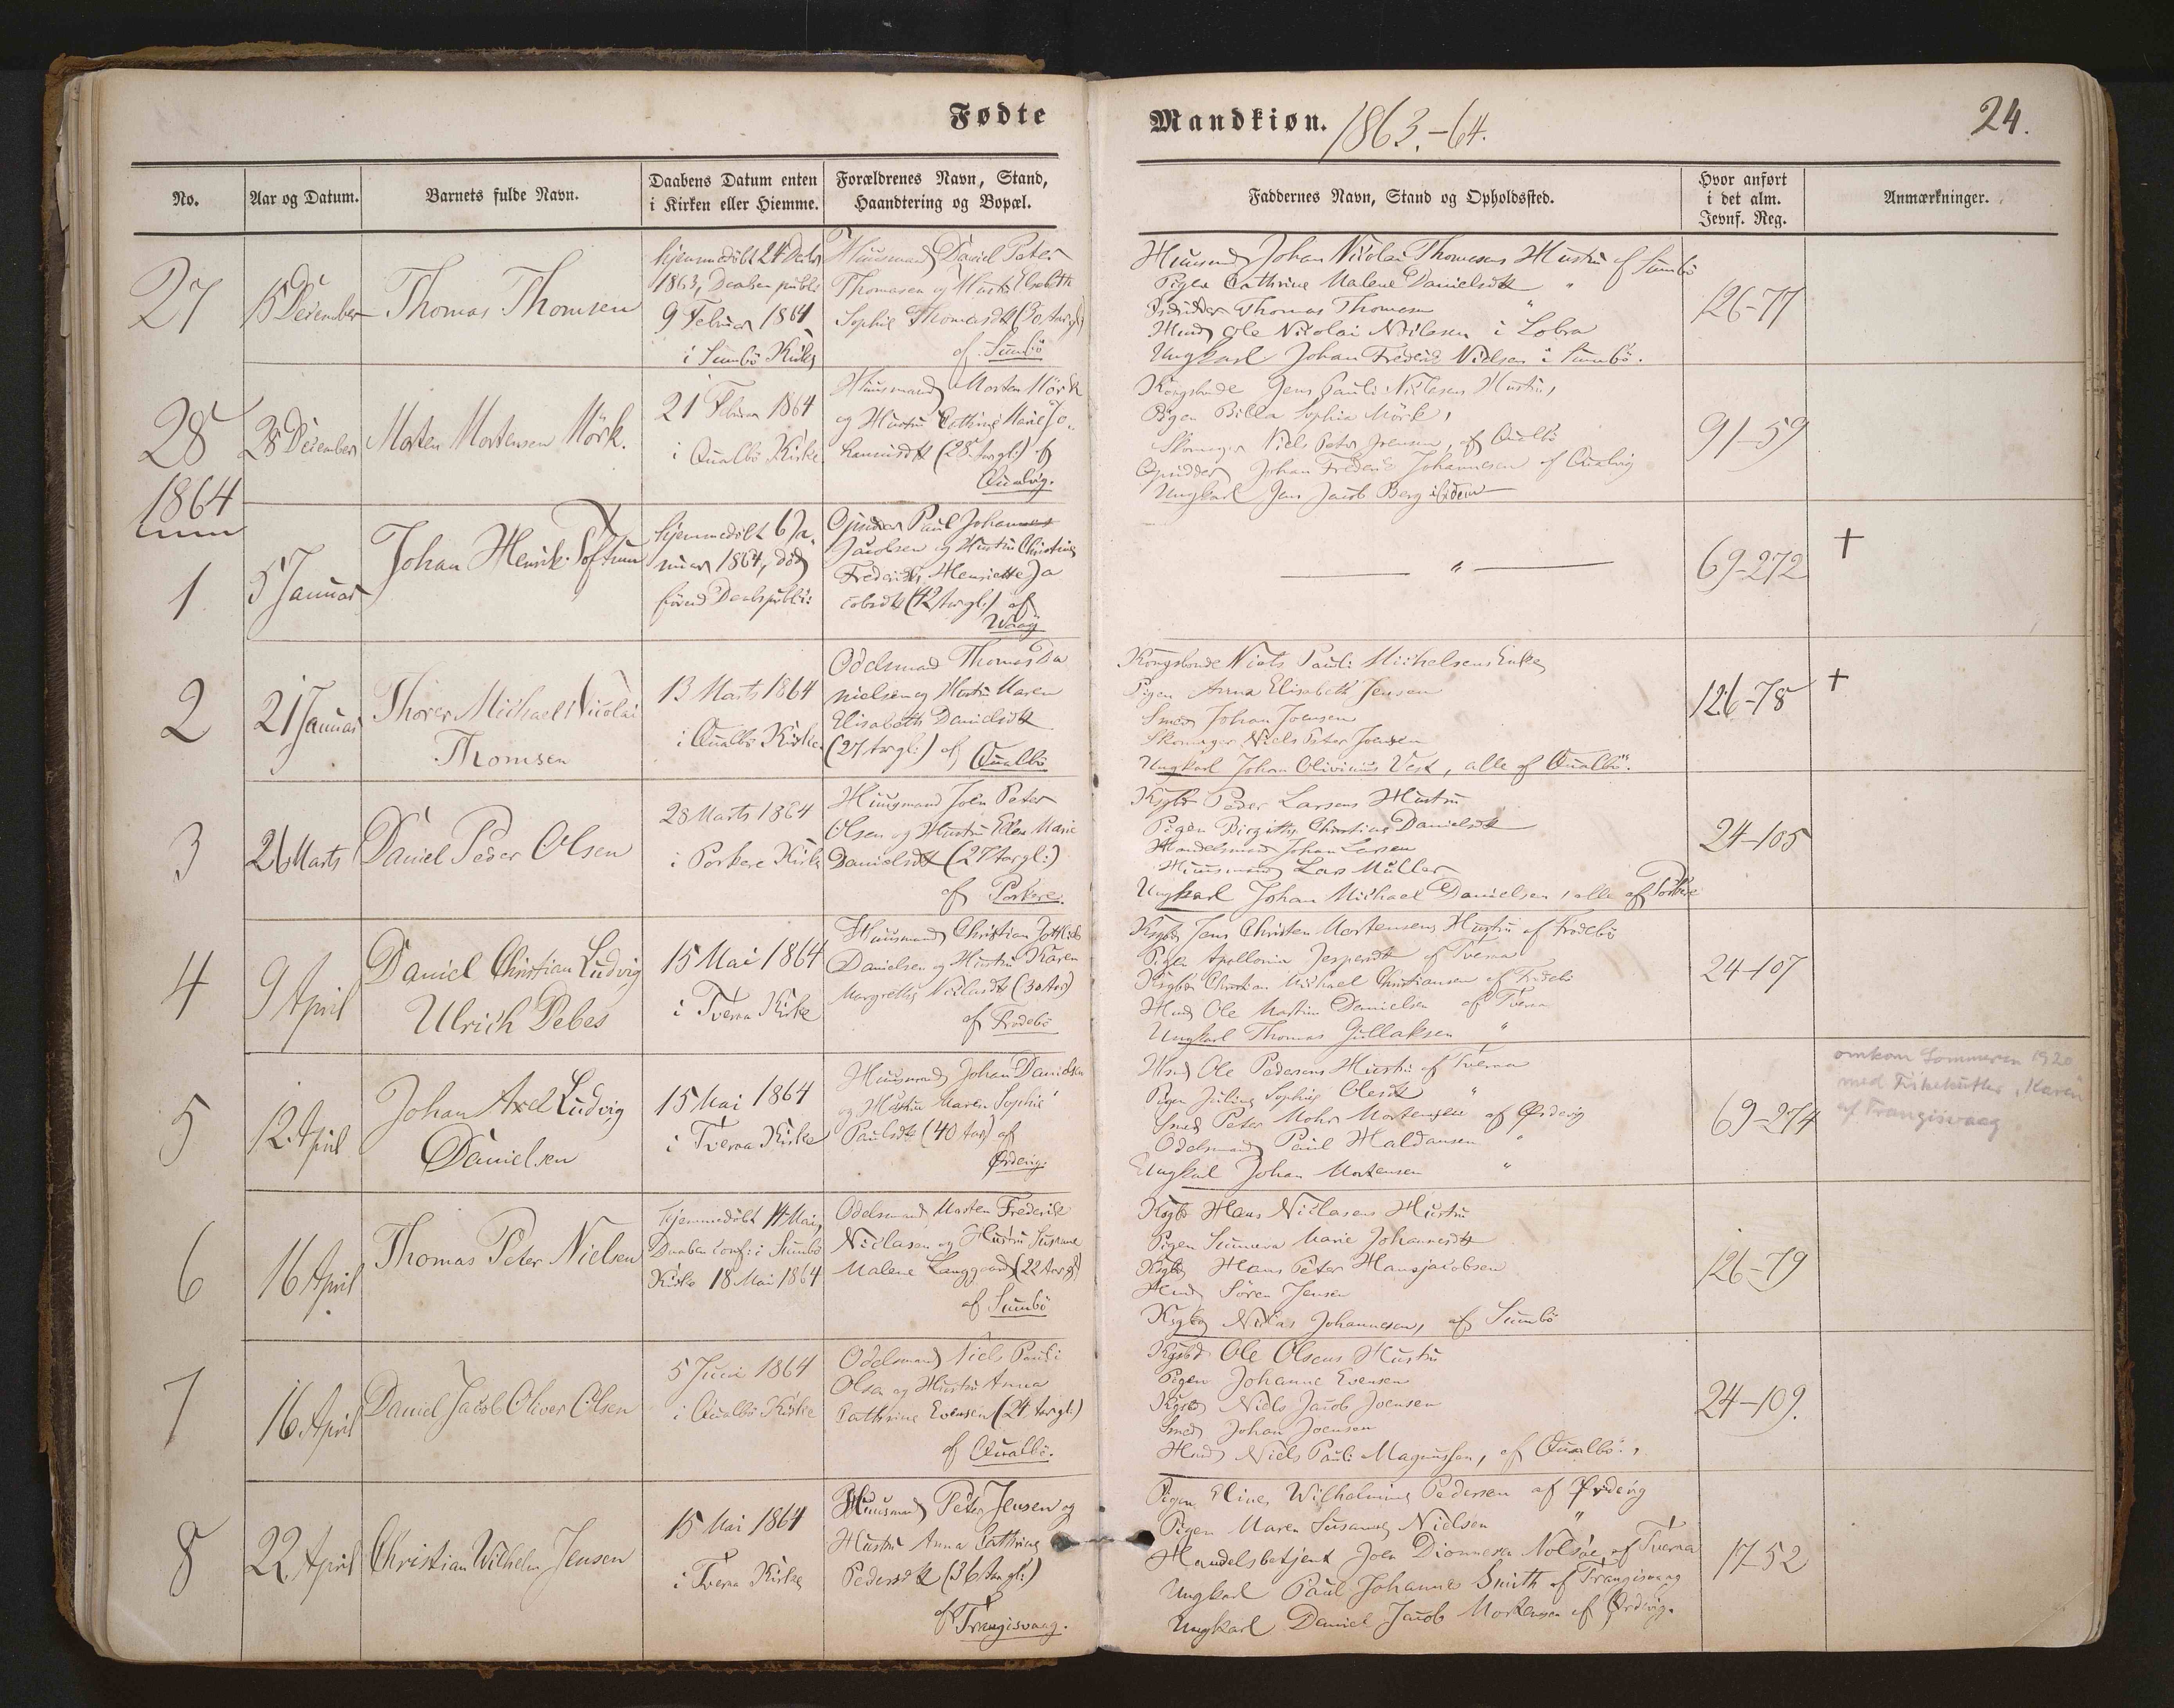 Fødte
Mandkiøn. 1863.-64.
24.
No.
Aar og Datum.
Barnets fulde Navn.
Daabens Datum enten
i Kirken eller Hiemme.
Forældrenes Navn, Stand,
Haandtering og Bopæl.
Faddernes Navn, Stand og Opholdssted.
Hvor anført
i det alm.
Jevnf. Reg.
Anmærkninger.
27
15 December
Thomas Thomsen
hjemmedöbt 24 Decbr
1863, Daaben publ:
9 Februar 1864
i Sumbö Kirke
Huusmand Daniel Peter
Thomasen og Hustru Elsebeth
Sophie Thomasdtt (30 Aar gl:)
af Sumbö
Huusmd Johan Nicolai Thomsens Hustru af Sumbö
Pigen Cathrine Malene Danielsdtt "
Thomas Thomsen "
Husmd Ole Nicolai Niclasen i Lobra
Ungkarl Johan Frederik Nielsen i Sumbö.
126-77
28
28 December
Morten Mortensen Mörk.
21 Februar 1864
i Qualbö Kirke
Huusmand Morten Mörk
og Hustru Cathrine Marie Jo-
hannisdtt (28 Aar gl:) af
Qualvig.
Kongsbonde Jens Pauli Niclasens Hustru,
Pigen Billa Sophia Mörk,
Skomager Niels Peter Joensen, af Qualbö
Opsidder Johan Frederik Johannesen af Qualvig
Ungkarl Jens Jacob Berg ibidem
91-59
1864
1
5 Januar
Johan Henrik Toftum
hjemmedöbt 6 Ja-
nuar 1864, död
förend Daabspubli:
Opsidder Paul Johannes
Jacobsen og Hustru Christine
Fredericke Henriette Ja
cobsdtt (42 Aar gl:) af
Waag
"
69-272
+
2
21 Januar
Thorer Michael Nicolai
Thomsen
13 Marts 1864
i Qualbö Kirke.
Odelsmand Thomas Da
nielsen og Hustru Maren
Elisabeth Danielsdtt
(27 Aar gl:) af Qualbö
Kongsbonde Niels Pauli Michelsens Enke
Pigen Anna Elisabeth Jensen
Smed Johan Joensen
Skomager Niels Peter Joensen
Ungkarl Johan Olivinus Vest, alle af Qualbö.
126-78
+
3
26 Marts
Daniel Peder Olsen
28 Marts 1864
i Porkere Kirke
Huusmand Joen Peter
Olsen og Hustru Ellen Marie
Danielsdtt (27 Aar gl:)
af Porkere.
Kgsbd Peder Larsens Hustru
Pigen Birgithe Christine Danielsdtt
Handelsmand Johan Larsen
Huusmand Lars Müller
Ungkarl Johan Michael Danielsen, alle af Porkere
24-105
4
9 April
Daniel Christian Ludvig
Ulrich Debes
15 Mai 1864
i Tveraa Kirke
Huusmand Christian Gottlieb
Danielsen og Hustru Karen
Margrethe Niclasdtt (30 Aar)
af Frodebö
Kgsbd Jens Christen Mortensens Hustru af Frodebö
Pigen Apollonia Jespersdtt af Tveraa
Kgsbd Christian Michael Christiansen af Frodebö
Husmd Ole Martin Danielsen af Tveraa
Ungkarl Thomas Gullaksen "
24-107
5
12 April
Johan Axel Ludvig
Danielsen
15 Mai 1864
i Tveraa Kirke
Huusmand Johan Danielsen
og Hustru Maren Sophie
Paulsdtt (40 Aar) af
Ørdevig.
Husmd Ole Pedersens Hustru af Tveraa
Pigen Juline Sophie Olesdtt "
Smed Peter Mohr Mortensen af Ørdevig
Odelsmand Paul Haldansen "
Ungkarl Johan Mortensen "
69-274
omkom Sommeren 1920
med Fiskekutter "Karen"
af Trangisvaag
6
16 April
Thomas Peter Nielsen
Hjemmedöbt 14 Mai,
Daaben conf: i Sumbö
Kirke 18 Mai 1864
Odelsmand Morten Frederik
Niclasen og Hustru Susanne
Malene Langgaard (22 Aar gl:)
af Sumbö
Kgsbd Hans Niclasens Hustru
Pigen Sunneva Marie Johannesdtt
Kgsbd Hans Peter Hansjacobsen
Husmd Sören Jensen
Kgsbd Niclas Johannesen, af Sumbö
126-79
7
16 April
Daniel Jacob Oliver Olsen
5 Juni 1864
i Qualbö Kirke
Odelsmand Niels Pauli
Olsen og Hustru Anna
Cathrine Evensen (24 Aar gl:)
af Qualbö.
Kgsbd Ole Olsens Hustru
Pigen Johanne Evensen
Kgsbd Niels Jacob Joensen
Smed Johan Joensen
Husmd Niels Pauli Magnussen, af Qualbö.
24-109.
8
22 April
Christian Wilhelm Jensen
15 Mai 1864
i Tveraa Kirke
Huusmand Peter Jensen og
Hustru Anna Cathrine
Pedersdtt (36 Aar gl:)
af Trangisvaag.
Pigen Eline Wilhelmine Pedersen af Ørdevig
Pigen Maren Susanne Nielsen "
Handelsbetjent Joen Dionnesen Nolsøe af Tveraa
Ungkarl Paul Johannes Smith af Trangisvaag
Ungkarl Daniel Jacob Mortensen af Ørdevig.
17-52